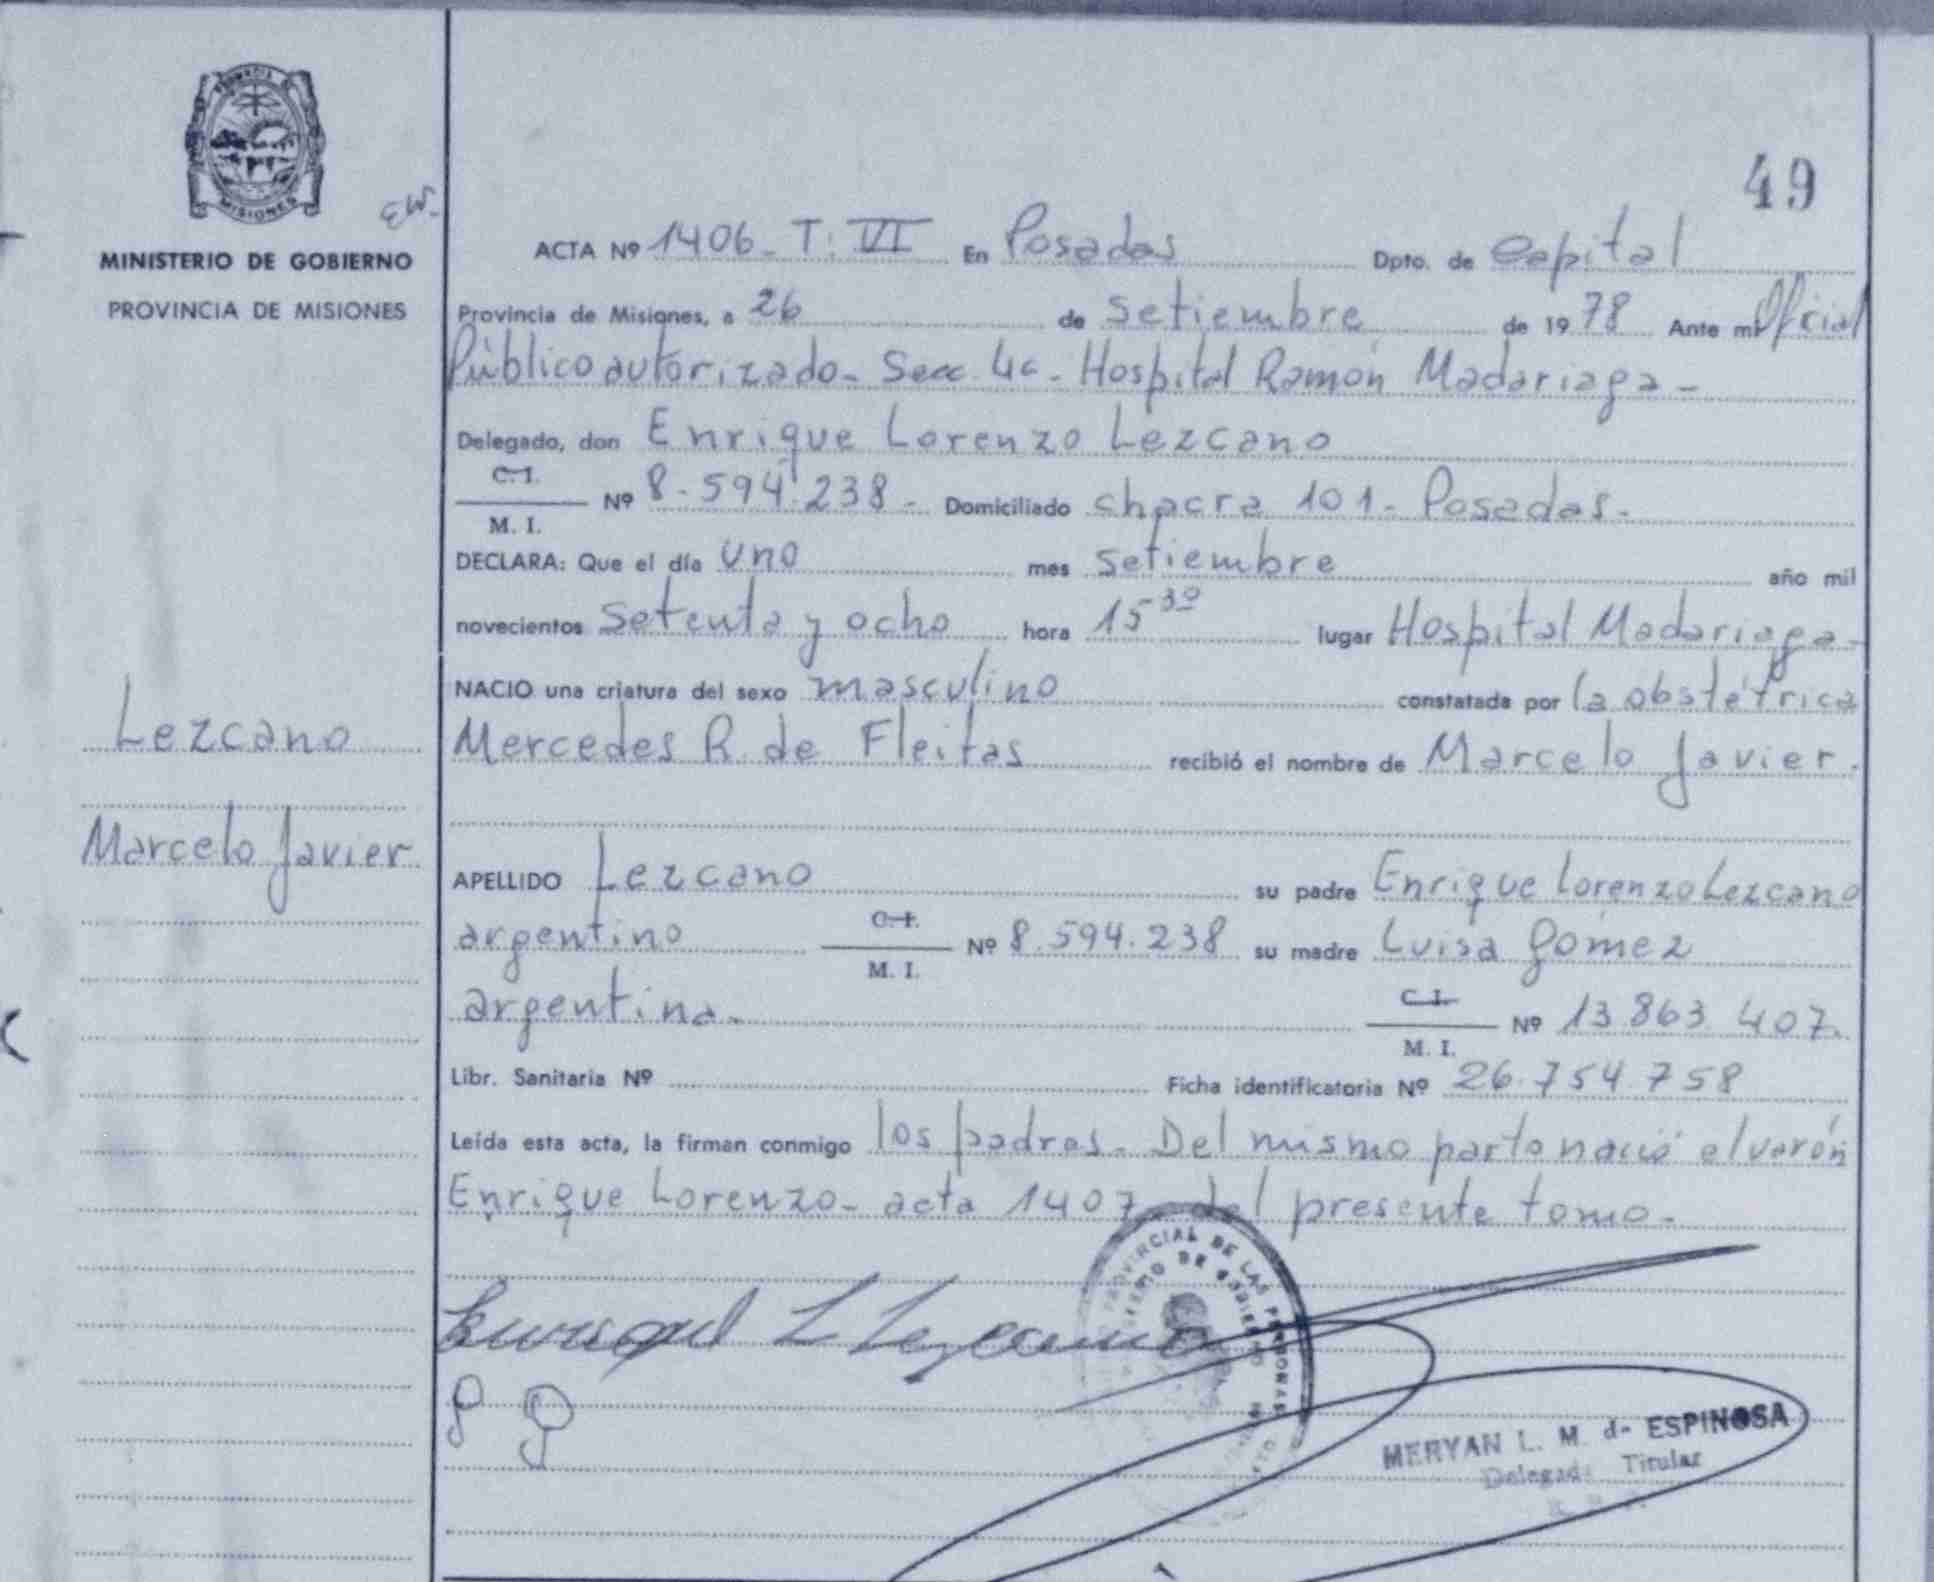 49
EW.
MINISTERIO DE GOBIERNO
PROVINCIA DE MISIONES
MISIONES
ACTA Nº 1406 - T. VI En Posadas Dpto. de Capital
Provincia de Misiones, a 26 de setiembre de 1978 Ante mi Oficial
Público autorizado - Secc 4a - Hospital Ramón Madariaga -
Delegado, don Enrique Lorenzo Lezcano
C. I.
M. I. Nº 8.594.238 - Domiciliado chacra 101 - Posadas.
DECLARA: Que el día uno mes setiembre año mil
novecientos setenta y ocho hora 15 30 lugar Hospital Madariaga -
NACIO una criatura del sexo masculino constatada por la obstétrica
Mercedes R. de Fleitas recibió el nombre de Marcelo Javier.
Lezcano
Marcelo Javier
APELLIDO Lezcano su padre Enrique Lorenzo Lezcano
argentino C. I.
M. I. Nº 8.594.238 su madre Luisa Gómez
argentina. C. I.
M. I. Nº 13 863 407.
Libr. Sanitaria Nº Ficha identificatoria Nº 26.754.758
Leída esta acta, la firman conmigo los padres. Del mismo parto nació el varón
Enrique Lorenzo - acta 1407 del presente tomo.
PROVINCIAL DE LAS PERSONAS
L Lezcano
MERYAN L. M. de ESPINOSA
Delegada Titular